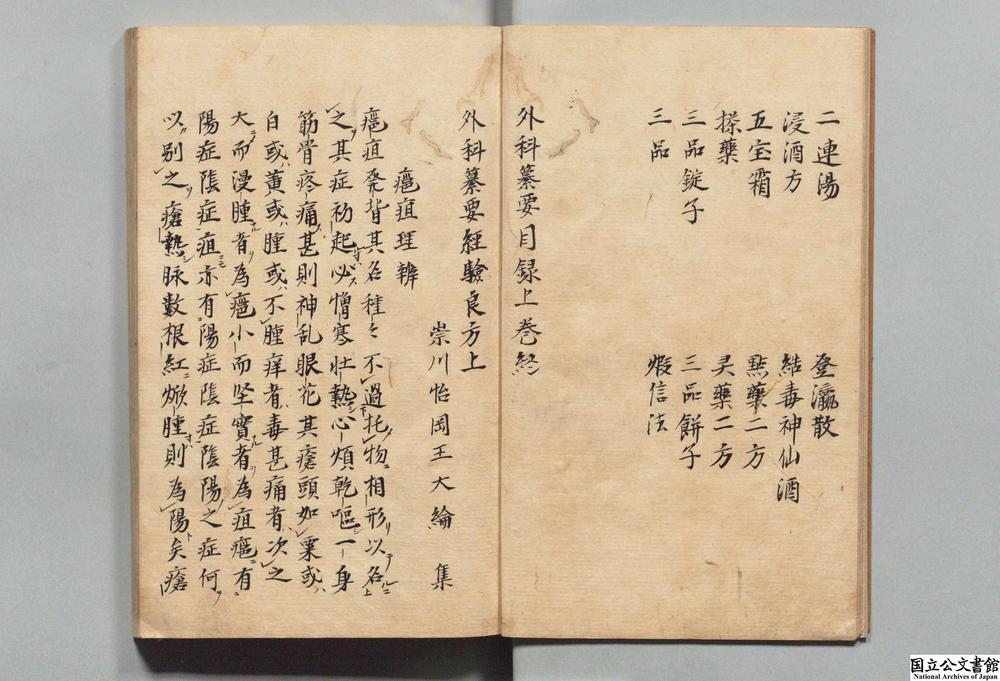 二連湯　登瀛散
浸酒方　結毒神仙酒
五宝霜　點藥二方
搽藥　灵藥二方
三品錠子　三品餅子
三品　煆信法
外科纂要目録上巻終
外科纂要經驗良方上
崇川怡岡王大綸　集
癰疽理辨
癰疽発背其名種々不過托物相形以名
之其症初起必憎寒壮熱心煩乾嘔一身
筋骨疼痛甚則神乱眼花其瘡頭如粟或
白或黄或腫或不腫痒者毒甚痛者次之
大而漫腫者為癰小而坚實者為疽癰有
陽症陰症疽亦有陽症陰症陰陽之症何
以別之瘡熱脉數根紅焮腫則為陽矣瘡
国立公文書館
National Archives of Japan